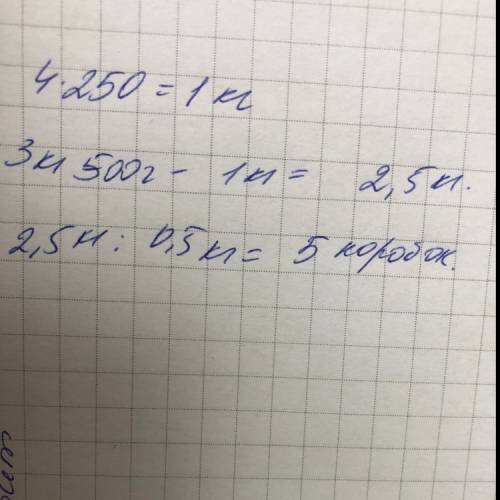 4·250 = 1 кг
3кг 500г - 1кг = 2,5кг.
2,5кг : 0,5кг = 5 коробок.